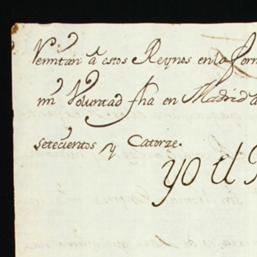 Venintàn à estos Reynos en la for
mi Voluntad fha en Madrid a
setecientos y Catorze.
yo el R